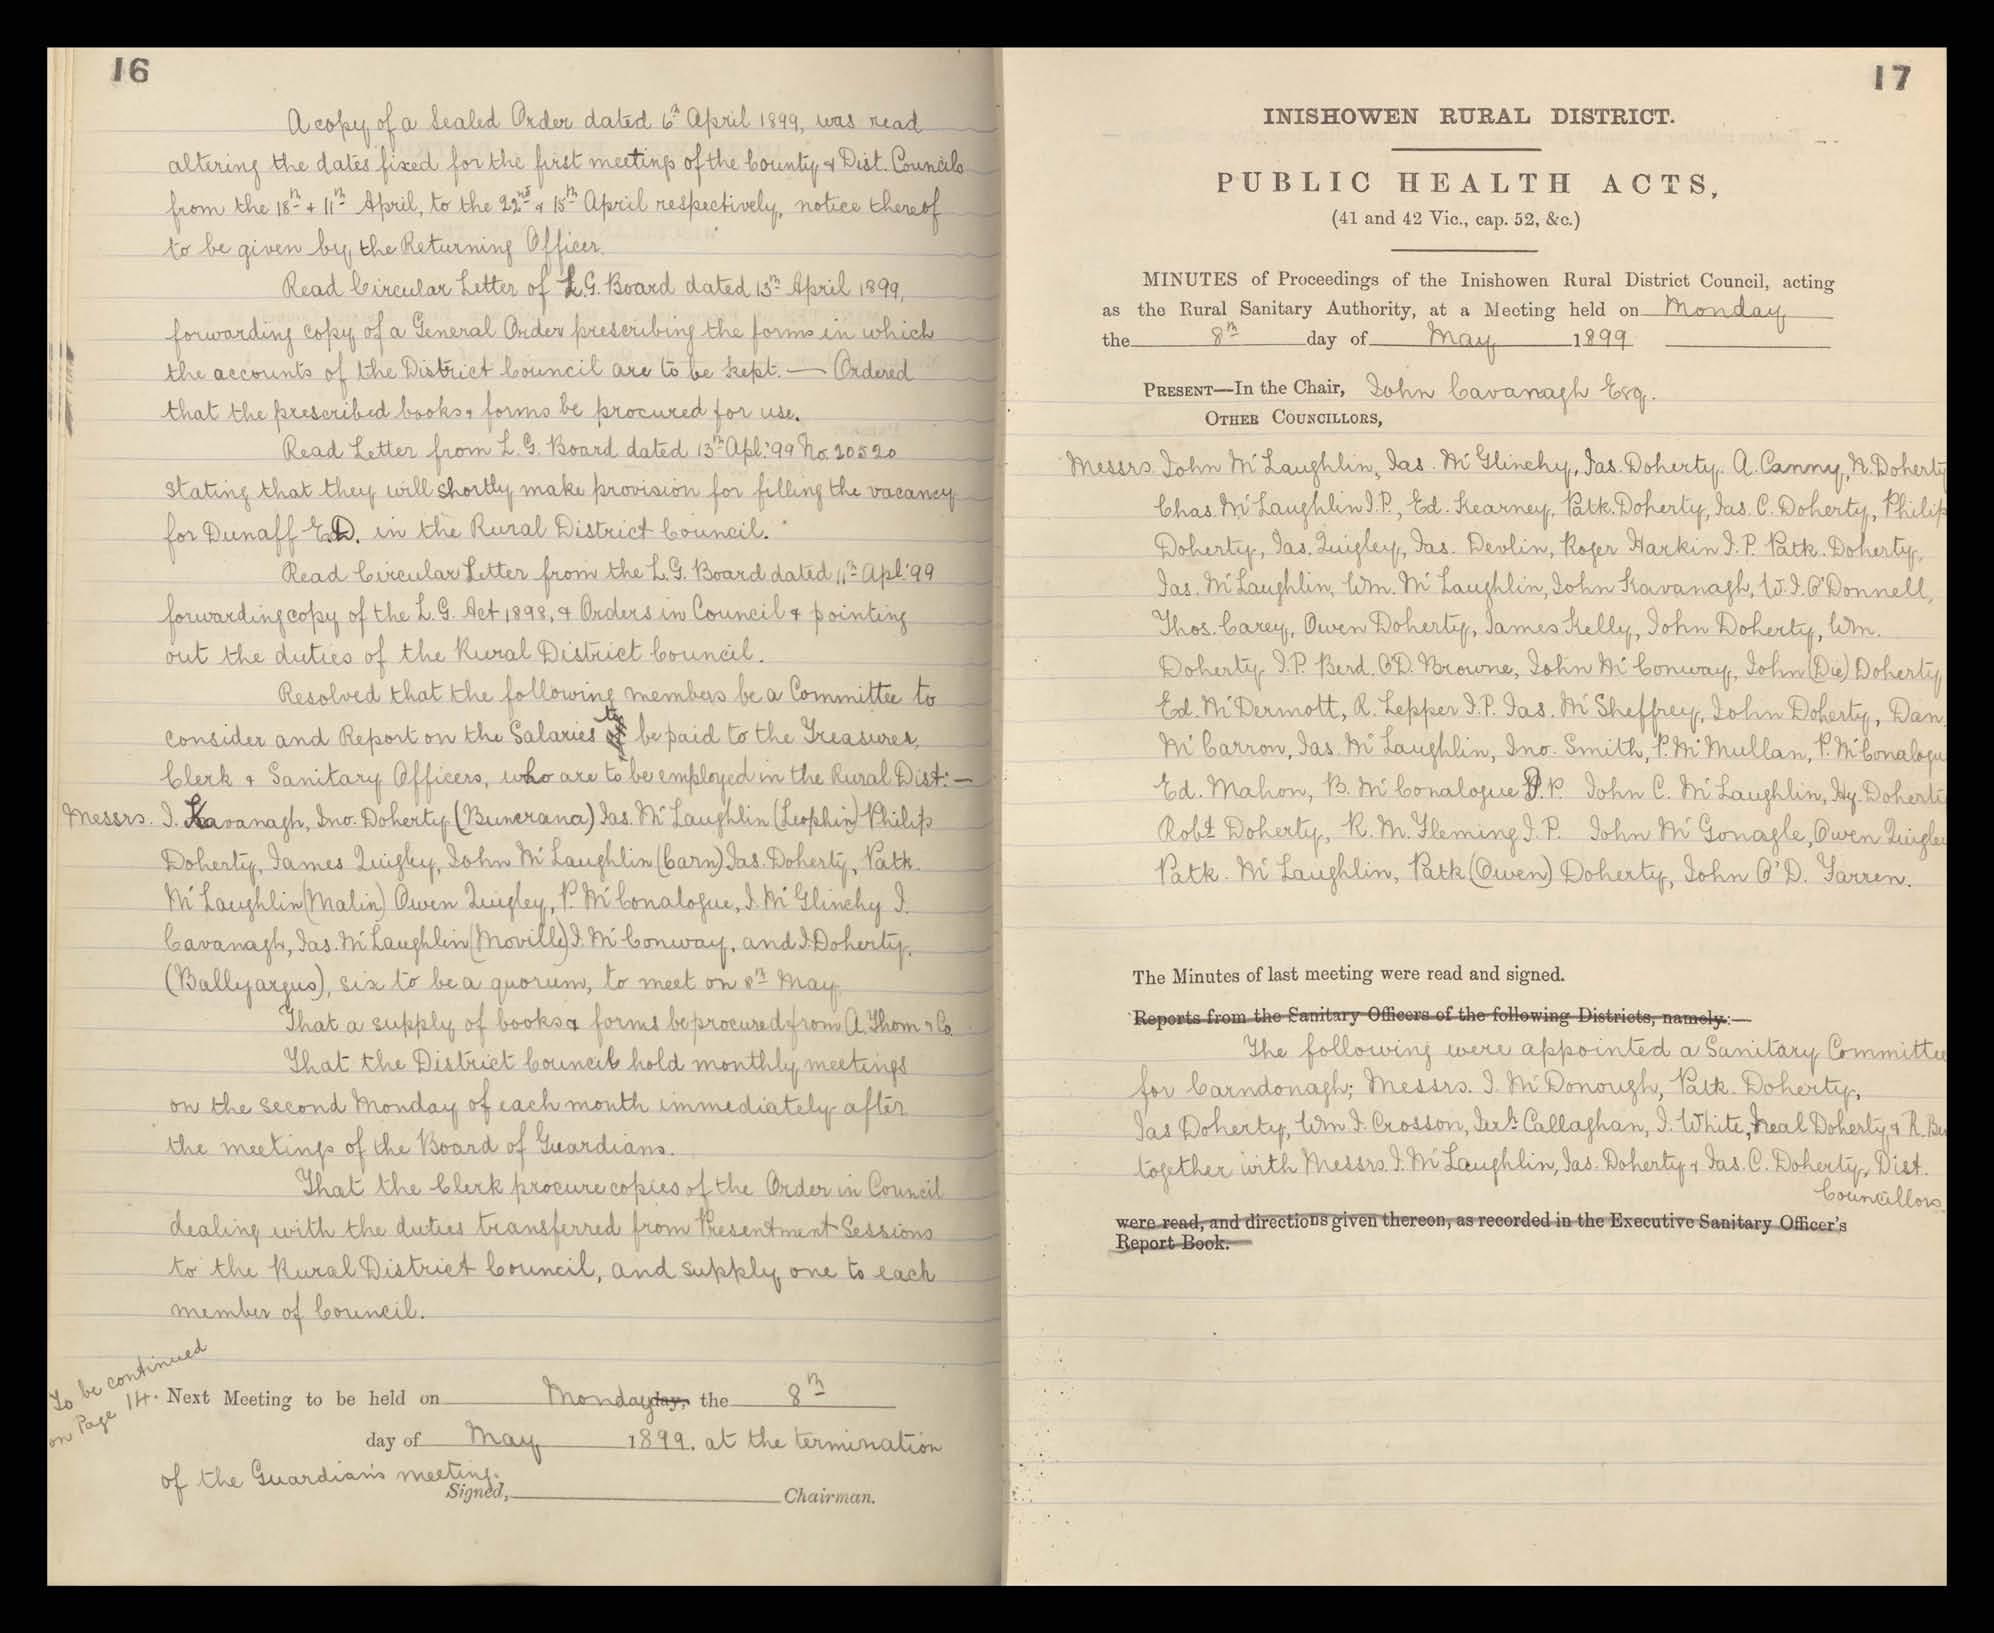 16
A copy of a Sealed Order dated 6th April 1899, was read
altering the dates fixed for the first meetings of the County & Dist. Councils
from the 18th & 11th April, to the 22nd & 15th April respectively, notice thereof
to be given by the Returning Officer.
Read Circular Letter of L.G. Board dated 13th April 1899,
forwarding copy of a General Order prescribing the forms in which
the accounts of the District Council are to be kept. — Ordered
that the prescribed books & forms be procured for use.
Read Letter from L.G. Board dated 13th Apl. '99 No. 20520
stating that they will shortly make provision for filling the vacancy
for Dunaff E.D. in the Rural District Council.
Read Circular Letter from the L.G. Board dated 11th Apl. '99
forwarding copy of the L.G. Act 1898, & Orders in Council & pointing
out the duties of the Rural District Council.
Resolved that the following members be a Committee to
consider and Report on the Salaries to be paid to the Treasurer,
Clerk & Sanitary Officers, who are to be employed in the Rural Dist: —
Messrs. J. Kavanagh, Jno. Doherty (Buncrana) Jas. McLaughlin (Leophin) Philip
Doherty, James Quigley, John McLaughlin (Carn) Jas. Doherty, Patk.
McLaughlin (Malin) Owen Quigley, P. McConalogue, J. McGlinchy J.
Cavanagh, Jas. McLaughlin (Moville) J. McConway, and J. Doherty,
(Ballyargus), six to be a quorum, to meet on 8th May.
That a supply of books & forms be procured from A. Thom & Co.
That the District Council hold monthly meetings
on the second Monday of each month immediately after
the meetings of the Board of Guardians.
That the Clerk procure copies of the Order in Council
dealing with the duties transferred from Presentment Sessions
to the Rural District Council, and supply one to each
member of Council.
To be continued
on Page 14.
Next Meeting to be held on Monday day, the 8th
day of May 1899. at the termination
of the Guardian's meeting.
Signed, Chairman.
17
INISHOWEN RURAL DISTRICT.
PUBLIC HEALTH ACTS,
(41 and 42 Vic., cap. 52, &c.)
MINUTES of Proceedings of the Inishowen Rural District Council, acting
as the Rural Sanitary Authority, at a Meeting held on Monday
the 8th day of May 1899
PRESENT—In the Chair, John Cavanagh Esq.
OTHER COUNCILLORS,
Messrs John McLaughlin, Jas. McGlinchy, Jas. Doherty. A. Canny, N. Doherty
Chas. McLaughlin J.P., Ed. Kearney, Patk. Doherty, Jas. C. Doherty, Philip
Doherty, Jas. Quigley, Jas. Devlin, Roger Harkin J.P. Patk. Doherty,
Jas. McLaughlin, Wm. McLaughlin, John Kavanagh, W.J. O'Donnell,
Thos. Carey, Owen Doherty, James Kelly, John Doherty, Wm.
Doherty J.P. Berd. O'D. Browne, John McConway, John (Die) Doherty
Ed. McDermott, R. Lepper J.P. Jas. McSheffrey, John Doherty, Dan.
McCarron, Jas. McLaughlin, Jno. Smith, P. McMullan, P. McConalogu
Ed. Mahon, B. McConalogue P.P. John C. McLaughlin, Hy. Doherty
Robt Doherty, R. M. Fleming J.P. John McGonagle, Owen Quigley
Patk. McLaughlin, Patk (Owen) Doherty, John O'D. Farren.
The Minutes of last meeting were read and signed.
Reports from the Sanitary Officers of the following Districts, namely:—
The following were appointed a Sanitary Committee
for Carndonagh; Messrs. J. McDonough, Patk. Doherty,
Jas Doherty, Wm J. Crosson, Callaghan, J. White, Neal Doherty & R.
together with Messrs. J. McLaughlin, Jas. Doherty & Jas. C. Doherty, Dist.
Councillors.
were read, and directions given thereon, as recorded in the Executive Sanitary Officer's
Report Book.